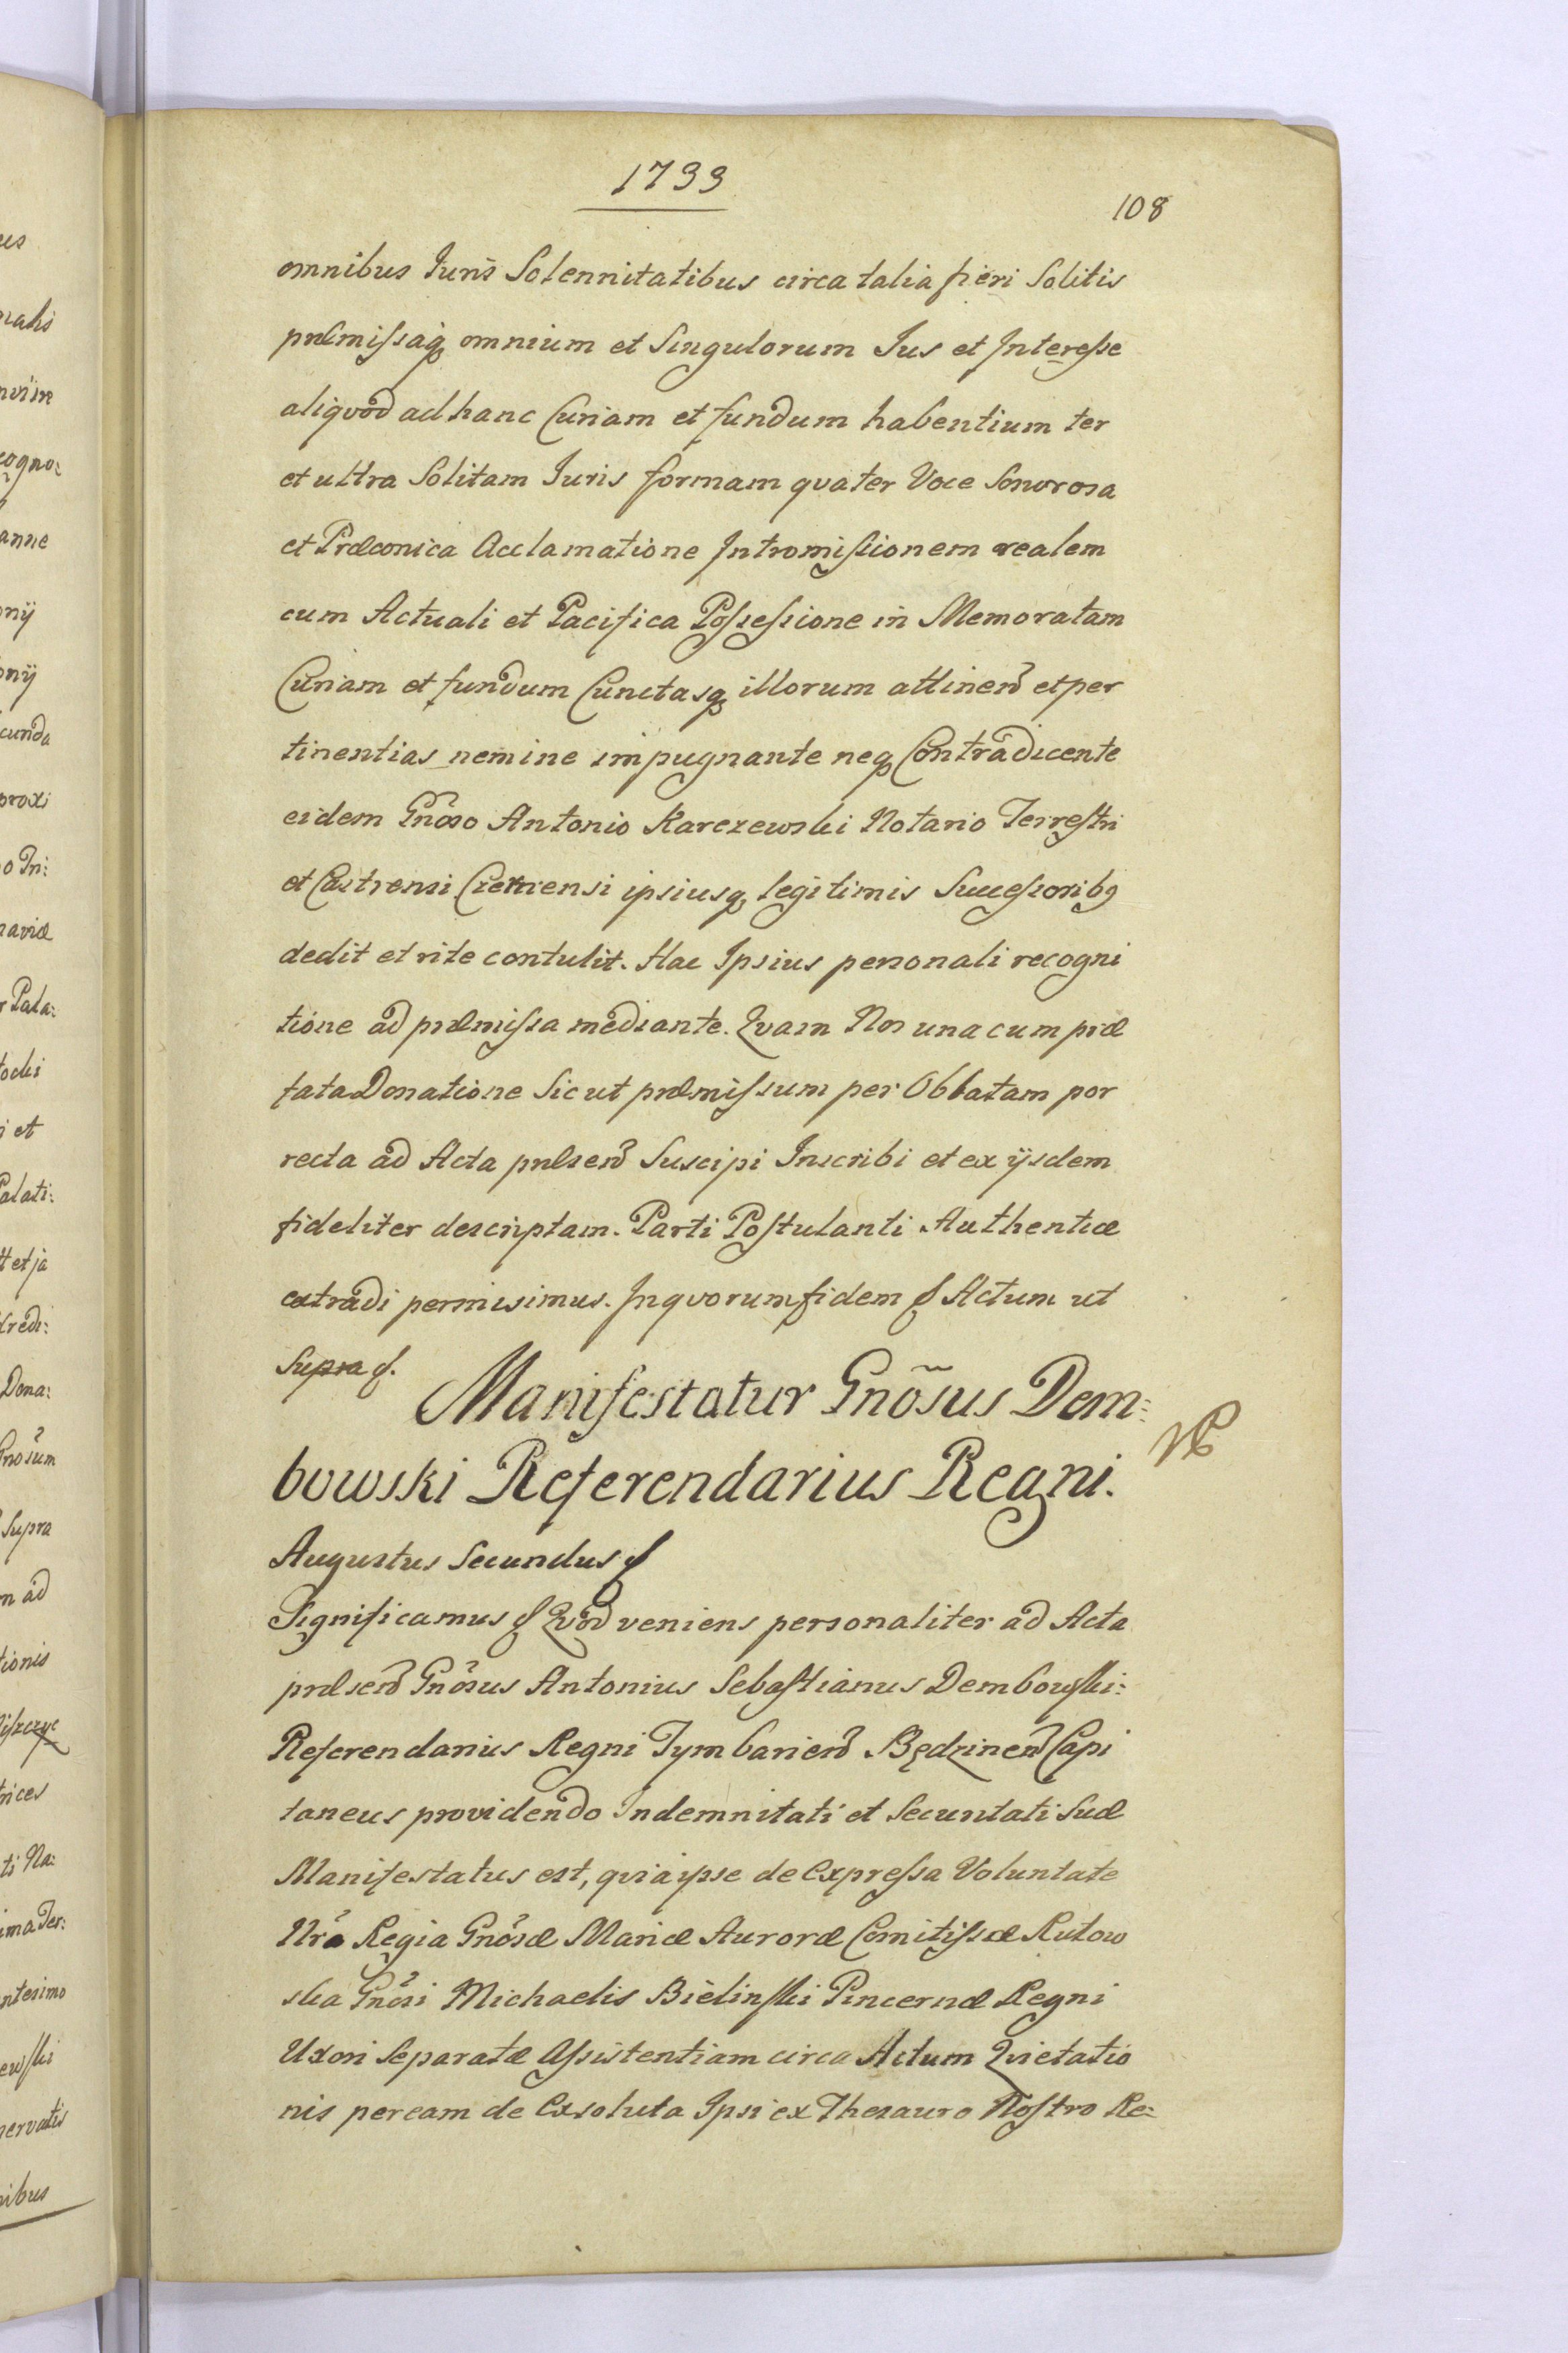 1733
108
omnibus Juris Solennitatibus circa talia fieri Solitis
præmissaq omnium et Singulorum Jus et Interesse
aliqvod ad hanc Curiam et fundum habentium ter
et ultra Solitam Juris formam qvater Voce Sonorosa
et Præconica Acclamatione Intromissionem realem
cum Actuali et Pacifica Possessione in Memoratam
Curiam et fundum Cunctasq illorum attinen et per
tinentias nemine impugnante neq Contradicente
eidem Gnoso Antonio Karczewski Notario Terrestri
et Castrensi ipsiusq legitimis Successorib9
dedit et rite contulit. Hac Ipsius personali recogni
tione ad præmissa mediante. Qvam Nos una cum præ
fata Donatione Sic ut præmissum per Oblatam por
recta ad Acta præsen Suscipi Inscribi et ex ijsdem
fideliter descriptam. Parti Postulanti Authenticæ
extradi permisimus. In qvorum fidem & Actum ut
Supra &.
Manifestatur Gnõsus Dem:
bowski Referendarius Regni.
Augustus Secundus &
Significamus & Qvod veniens personaliter ad Acta
præsen Gnosus Antonius Sebastianus Dembowski:
Referendarius Regni Tymbarien Będzinen Capi
taneus providendo Indemnitati et Securitati Suæ
Manifestatus est, qvia ipse de Expressa Voluntate
Nra Regia Gnosæ Mariæ Auroræ Comitissæ Rutow
ska Gnosi Michaelis Bielinski Pincernæ Regni
Uxori Separatæ Assistentiam circa Actum Qvietatio
nis per eam de Exsoluta Ipsi ex Thesauro Nostro Re: